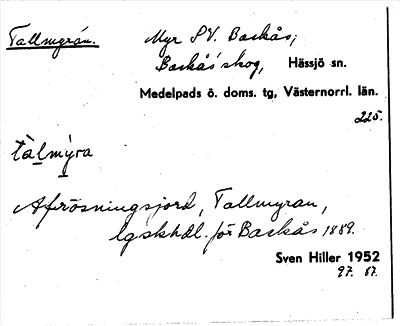 Tallmyrån. Myr SV. Backås,
Backås' skog, Hässjö sn.
Medelpads ö. doms. tg, Västernorrl. län.
225.
tàlmýra
Afrösningsjord, Tallmyran,
lgskhdl. för Backås 1889.
Sven Hiller 1952
97. 67.